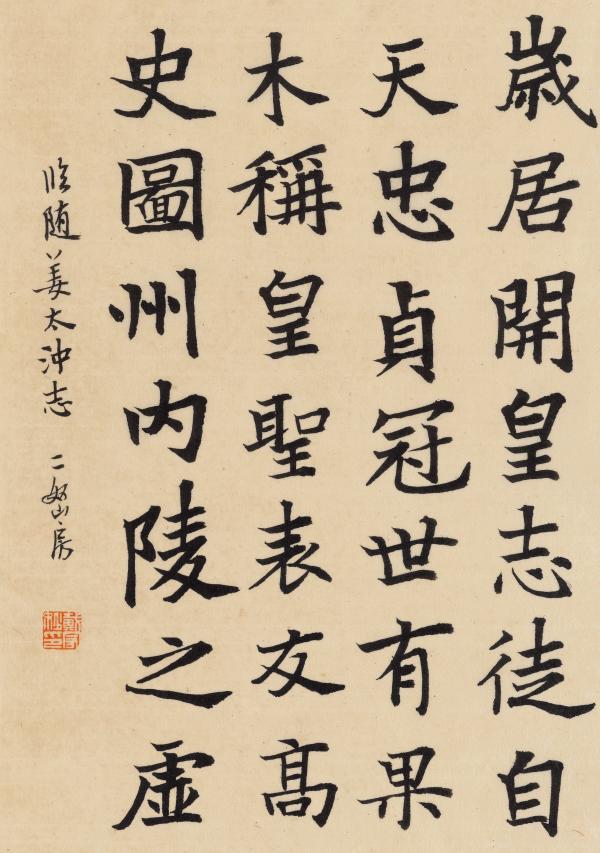 歲居開皇志徒自
天忠貞冠世有果
木稱皇聖表友高
史圖州内陵之虛
临随姜太沖志 二
房